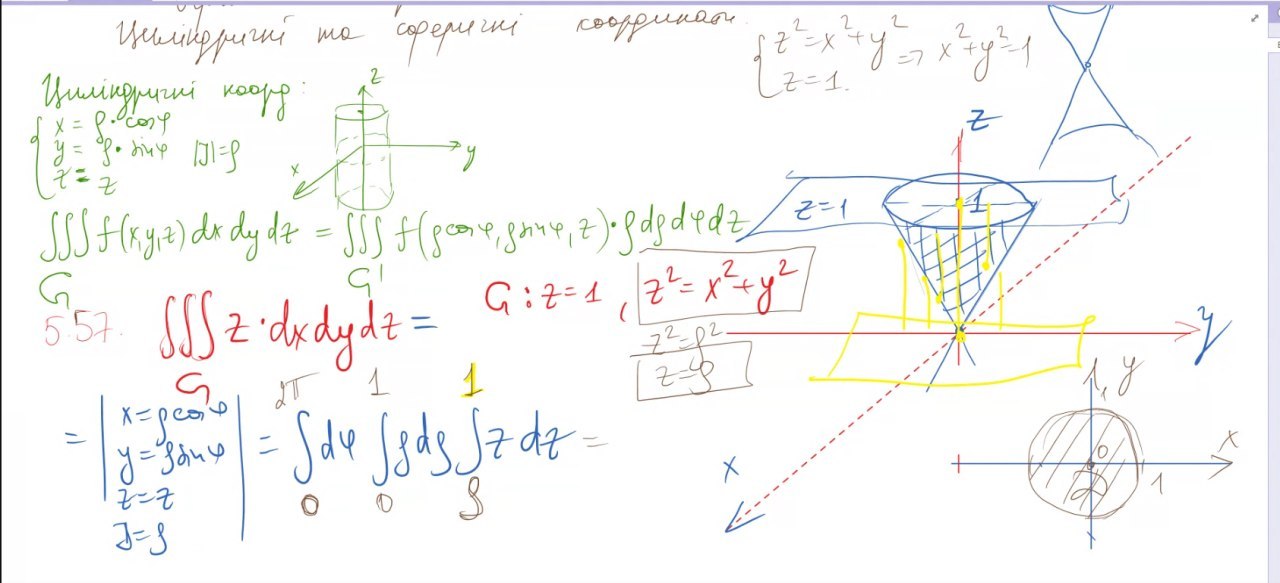 Циліндричні та сферичні координати.
{ z² = x² + y² => x² + y² = 1
z = 1.
Циліндричні коорд:
{ x = ρ·cosφ
y = ρ·sinφ |J| = ρ
z = z
z
y
x
∭ f(x,y,z) dx dy dz = ∭ f(ρcosφ, ρsinφ, z)·ρdρdφdz
G G'
5.57. ∭ z·dxdydz =
G
G : z = 1 , z² = x² + y²
z² = ρ²
z = ρ
= | x = ρcosφ
y = ρsinφ
z = z
J = ρ | = ∫ dφ ∫ ρdρ ∫ z dz =
2π 1 1
0 0 ρ
z
z = 1
1
y
x
1 y
x
0
1
D